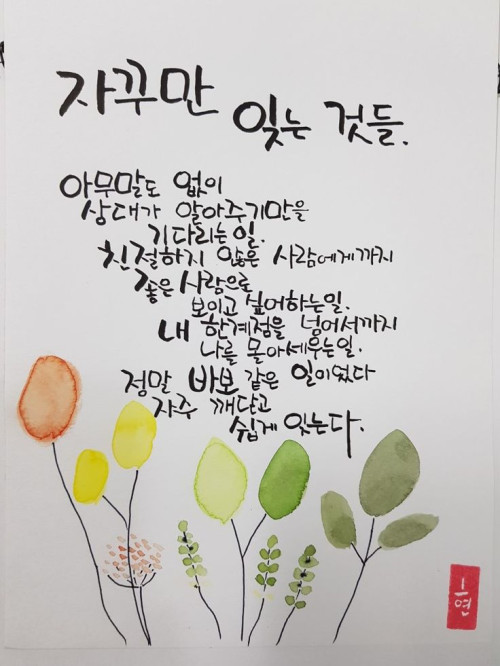 자꾸만 잊는 것들.
아무말도 없이
상대가 알아주기만을
기다리는일.
친절하지 않은 사람에게까지
좋은 사람으로
보이고 싶어하는일.
내 한계점을 넘어서까지
나를 몰아세우는일.
정말 바보 같은 일이었다
자주 깨닫고
쉽게 잊는다.